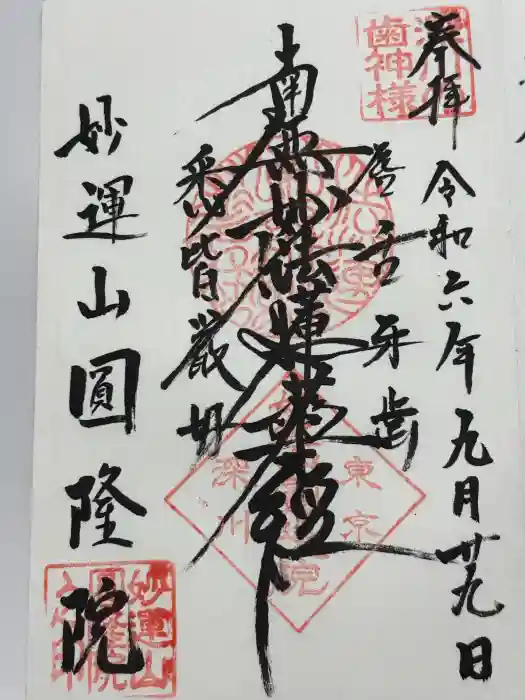 奉拝
令和六年九月廿九日
深川
歯神様
唇舌牙歯
南無妙法蓮華経
悉皆嚴好
東京
深川
妙運山圓隆院
妙運山
圓隆院
之印